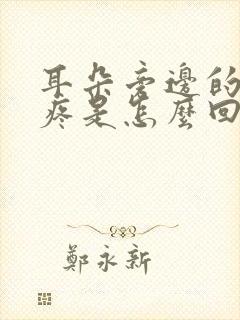 耳朵旁邊的
疼是怎麼回
鄭永新